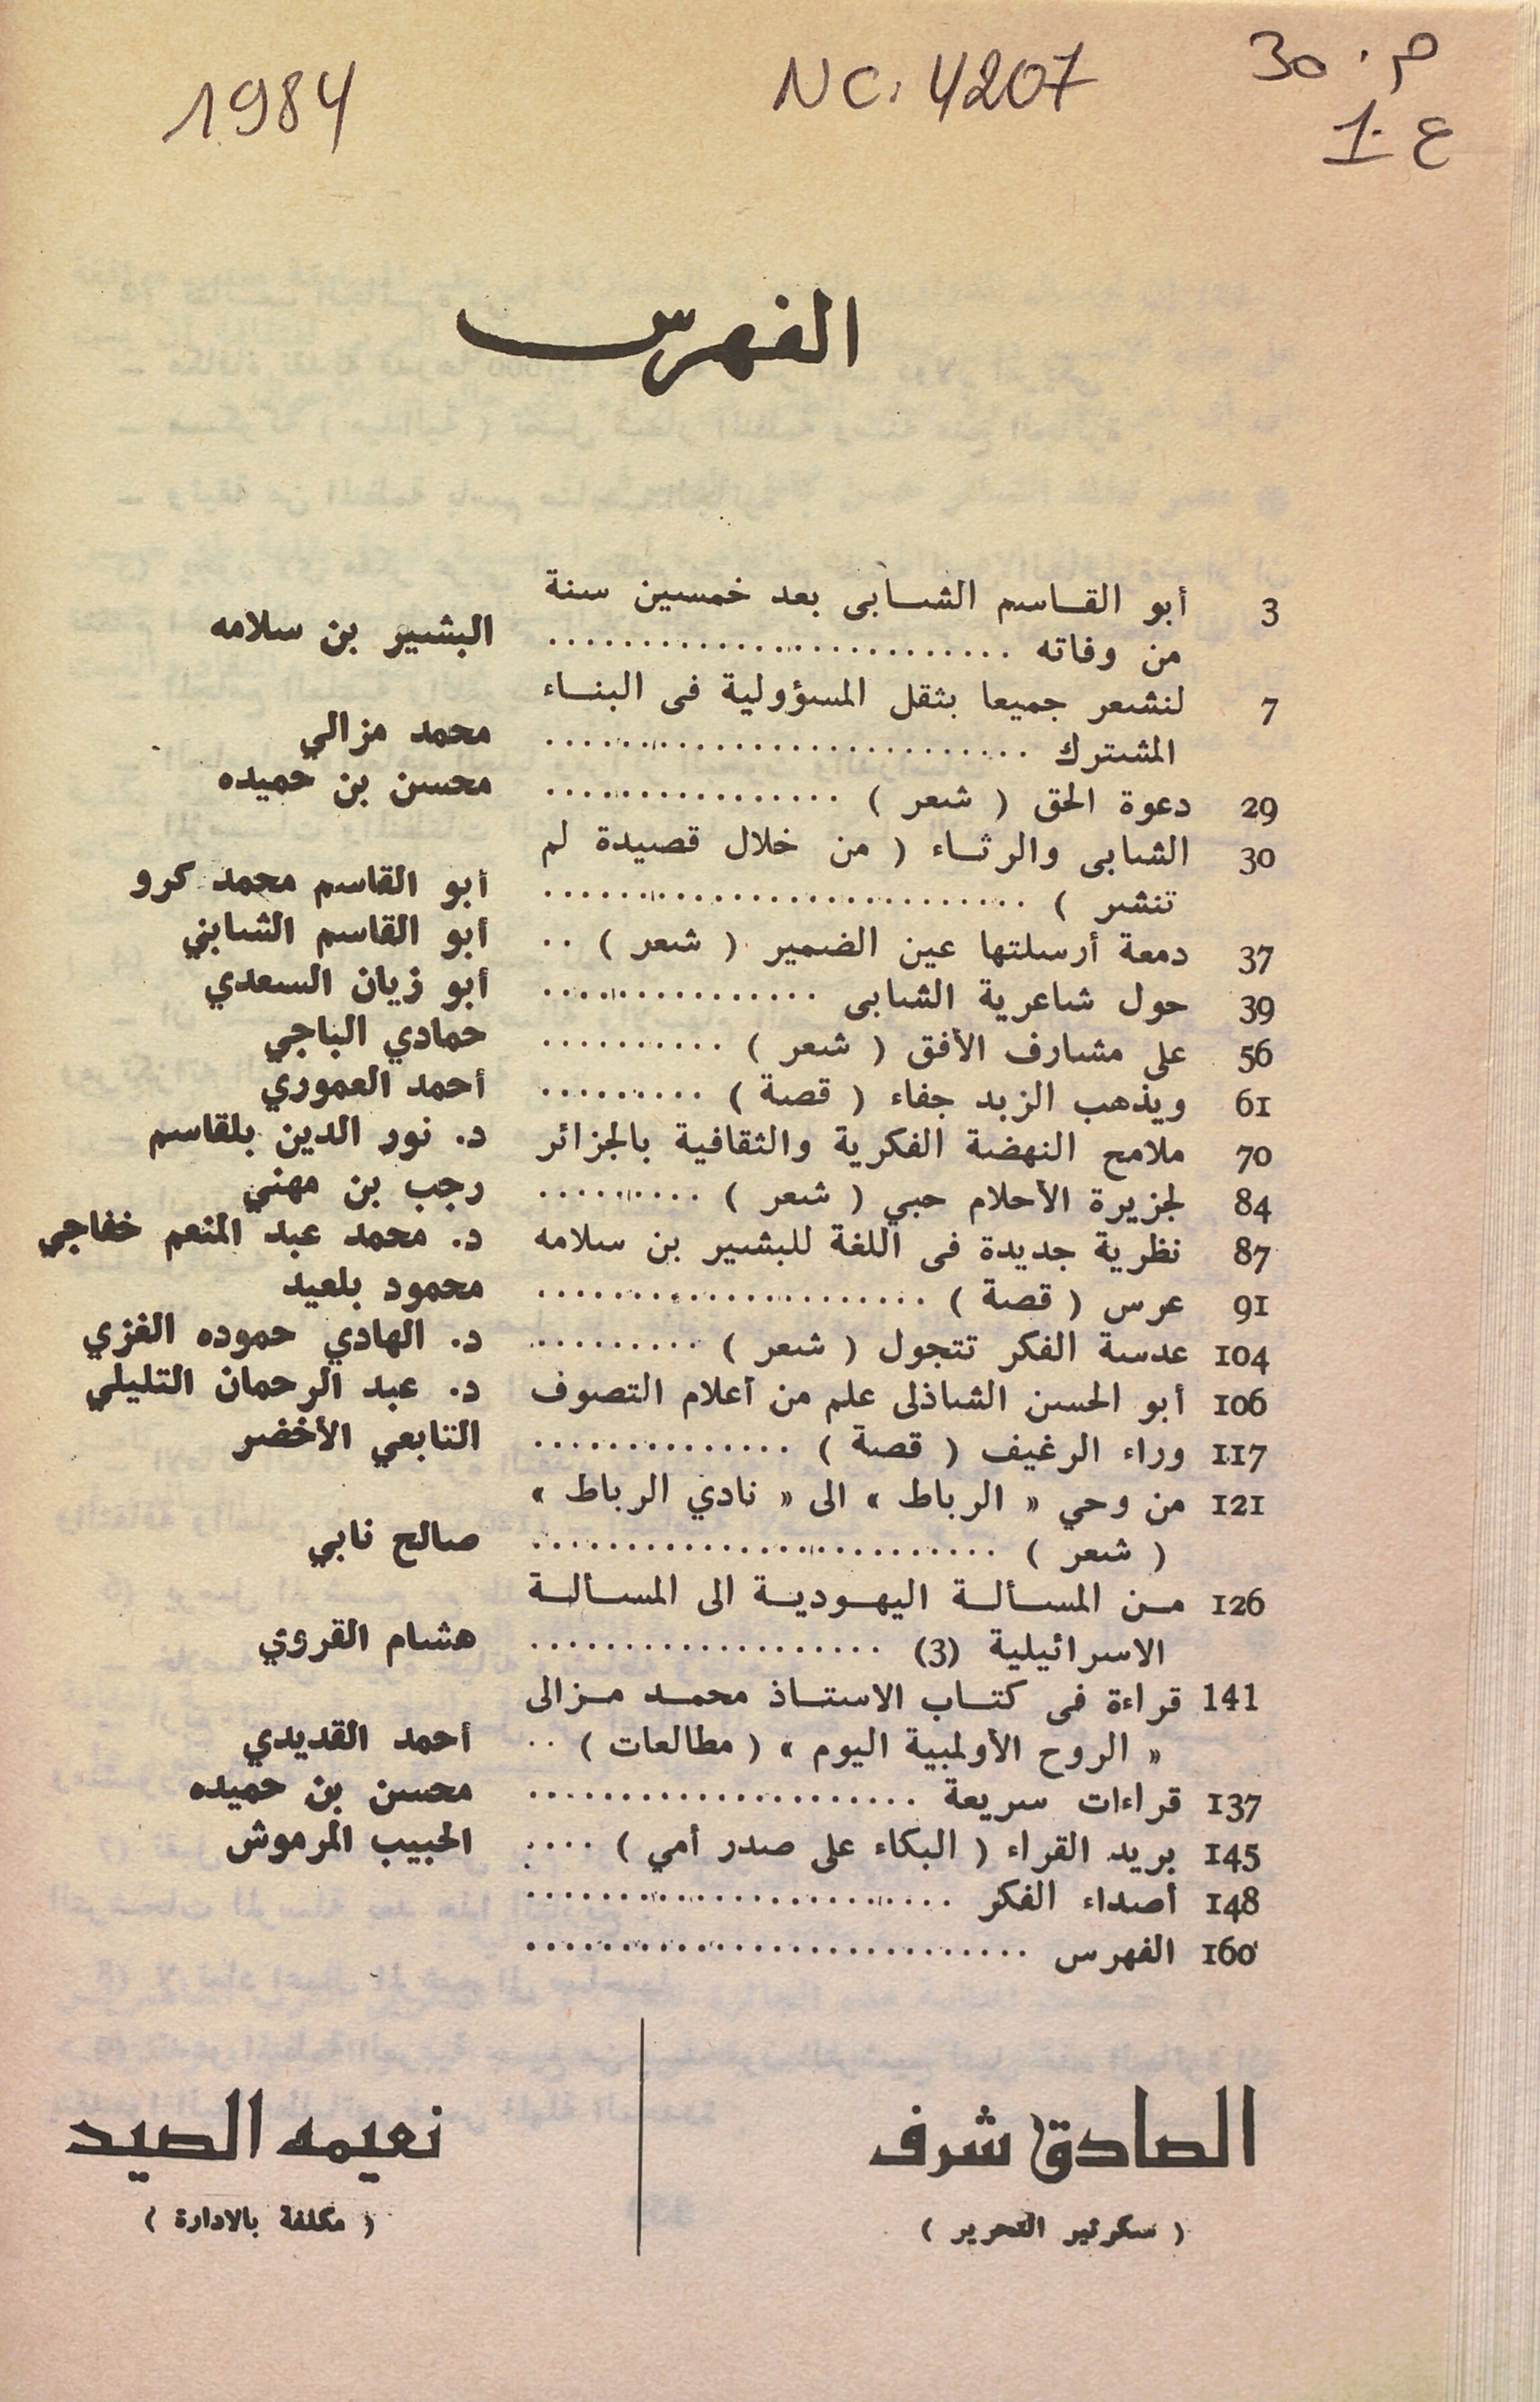 م . 30
NC. 4207
1984
ع 1.
الفهرس
3 أبو القاسم الشابى بعد خمسين سنة
من وفاته .......................... البشير بن سلامه
7 لنشعر جميعا بثقل المسؤولية فى البناء
المشترك .......................... محمد مزالي
29 دعوة الحق ( شعر ) ................ محسن بن حميده
30 الشابى والرثاء ( من خلال قصيدة لم
تنشر ) .......................... أبو القاسم محمد كرو
37 دمعة أرسلتها عين الضمير ( شعر ) .. أبو القاسم الشابي
39 حول شاعرية الشابى ............... أبو زيان السعدي
56 على مشارف الأفق ( شعر ) .......... حمادي الباجي
61 ويذهب الزبد جفاء ( قصة ) ......... أحمد العموري
70 ملامح النهضة الفكرية والثقافية بالجزائر د. نور الدين بلقاسم
84 لجزيرة الأحلام حبي ( شعر ) ......... رجب بن مهني
87 نظرية جديدة فى اللغة للبشير بن سلامه د. محمد عبد المنعم خفاجي
91 عرس ( قصة ) ..................... محمود بلعيد
104 عدسة الفكر تتجول ( شعر ) ......... د. الهادي حموده الغزي
106 أبو الحسن الشاذلى علم من أعلام التصوف د. عبد الرحمان التليلي
117 وراء الرغيف ( قصة ) .............. التابعي الأخضر
121 من وحي « الرباط » الى « نادي الرباط »
( شعر ) ......................... صالح نابي
126 من المسألة اليهودية الى المسألة
الاسرائيلية (3) ................... هشام القروي
141 قراءة فى كتاب الاستاذ محمد مزالى
« الروح الأولمبية اليوم » ( مطالعات ) .. أحمد القديدي
137 قراءات سريعة ..................... محسن بن حميده
145 بريد القراء ( البكاء على صدر أمي ) .... الحبيب المرموش
148 أصداء الفكر .......................
160 الفهرس ...........................
الصادق شرف
( سكرتير التحرير )
نعيمه الصيد
( مكلفة بالادارة )